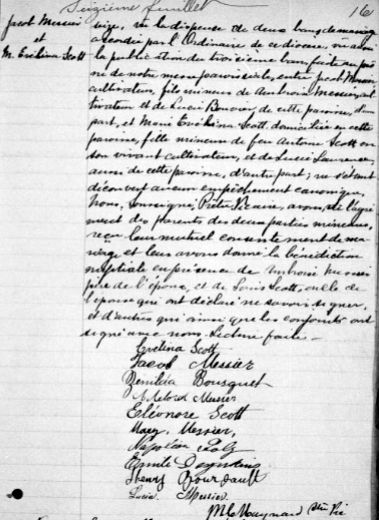 Seizième feuillet 16
Jacob Messier
et
M. Évélina Scott
seize, vu la dispense de deux bans de mariage
accordée par l'Ordinaire de ce diocèse, vu aussi
la publication du troisième ban faite au prô
ne de notre messe paroissiale, entre Jacob Messier
cultivateur, fils mineur de Ambroise Messier, cul
tivateur et de Lucie Benoit, de cette paroisse, d'une
part, et Marie Évélina Scott domiciliée en cette
paroisse, fille mineure de feu Antoine Scott en
son vivant cultivateur, et de Lucie
aussi de cette paroisse, d'autre part; ne s'étant
découvert aucun empêchement canonique,
Nous, soussigné, Prêtre Vicaire, avons, de l'agré
ment des parents des deux parties mineures,
reçu leur mutuel consentement de ma-
riage et leur avons donné la bénédiction
nuptiale en présence de Ambroise Messier
père de l'époux, et de Louis Scott, oncle de
l'épouse qui ont déclaré ne savoir signer,
et d'autres qui ainsi que les conjoints ont
signé avec nous. Lecture faite.
Evelina Scott
Jacob Messier
Bousquet
Messier
Eléonore Scott
Mary Messier,
Napoléon
Emile
Henry Bourdault
Lucie Messier
Ptre Vic